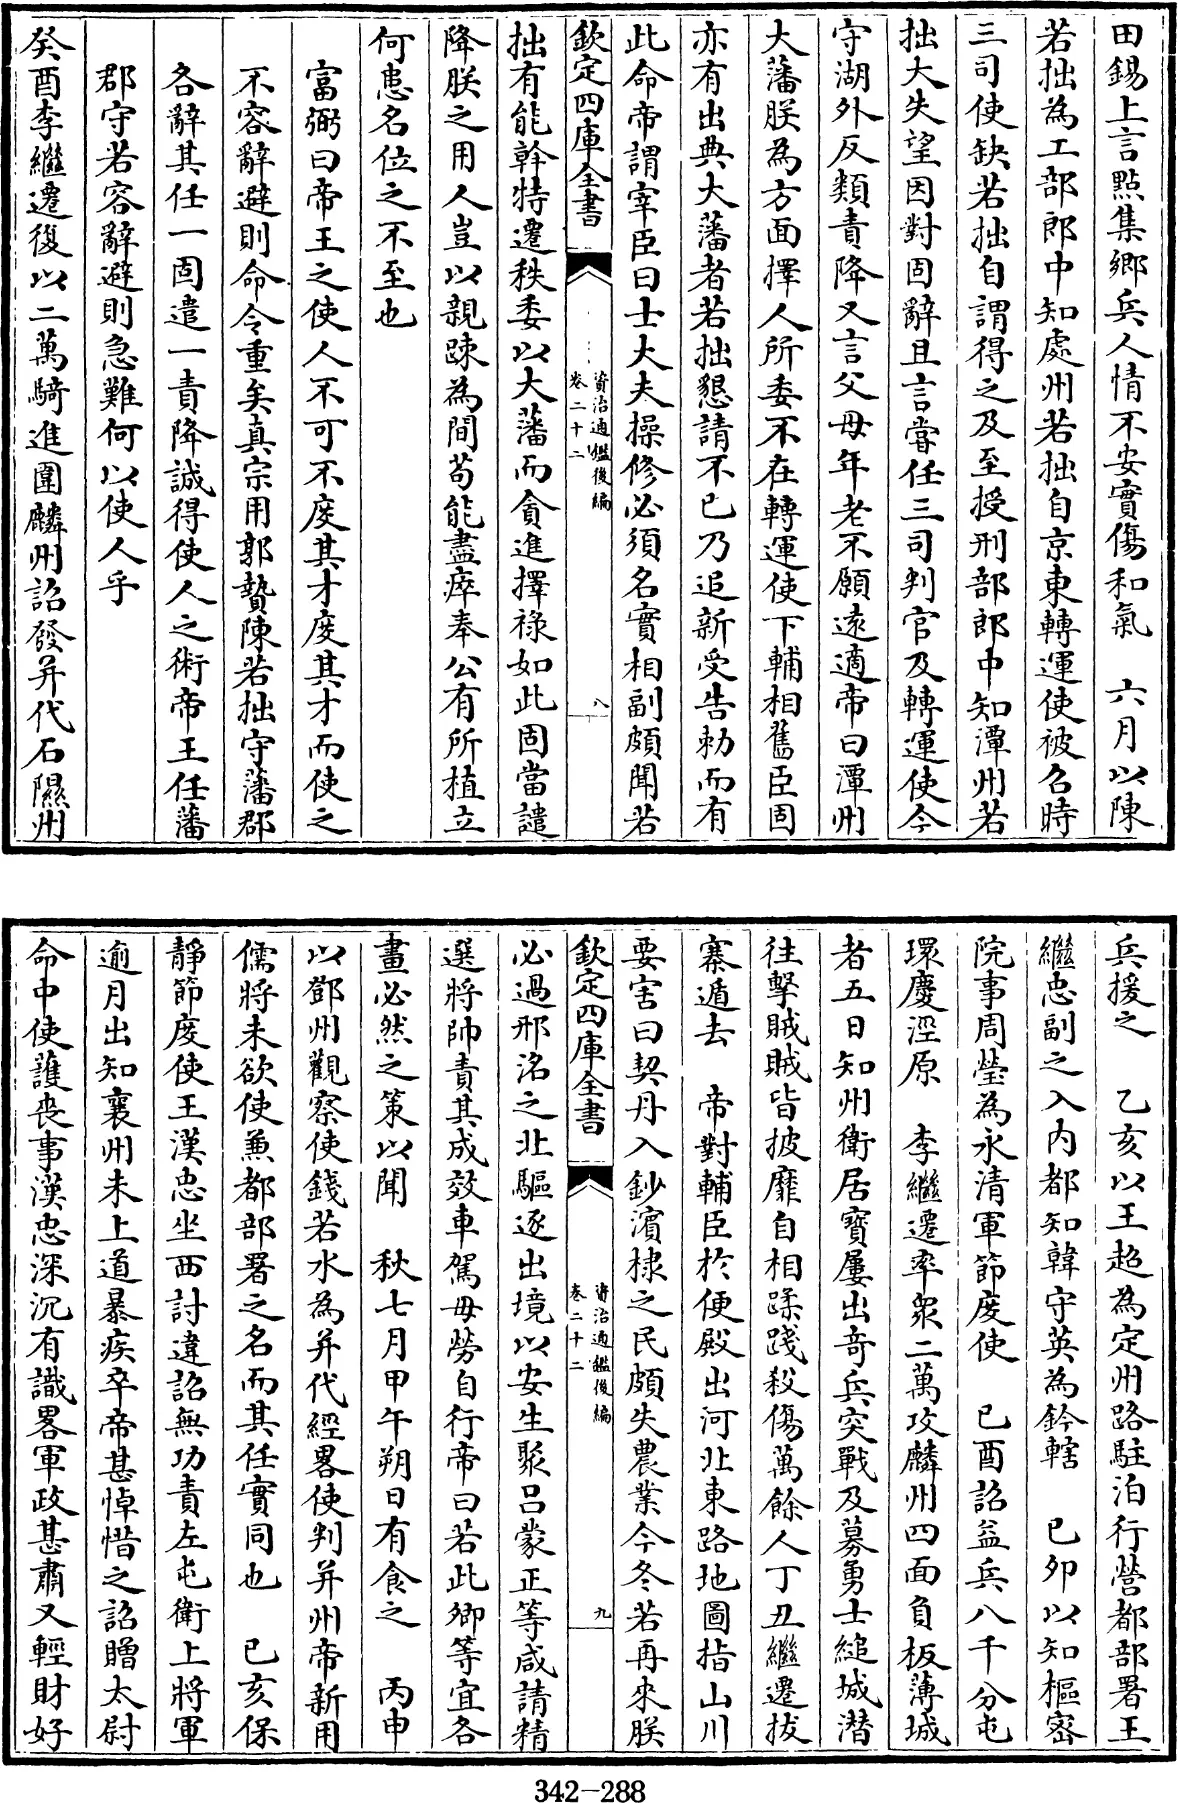 田錫上言點集鄉兵人情不安實傷和氣　六月以陳
若拙為工部郎中知處州若拙自京東轉運使被召時
三司使缺若拙自謂得之及至授刑部郎中知潭州若
拙大失望因對固辭且言嘗任三司判官及轉運使今
守湖外反類責降又言父母年老不願遠適帝曰潭州
大藩朕為方面擇人所委不在轉運使下輔相舊臣固
亦有出典大藩者若拙懇請不已乃追新受告勅而有
此命帝謂宰臣曰士大夫操修必須名實相副頗聞若
欽定四庫全書
資治通鑑後編
卷二十二
八
拙有能幹特遷秩委以大藩而貪進擇祿如此固當譴
降朕之用人豈以親疎為間苟能盡瘁奉公有所植立
何患名位之不至也
富弼曰帝王之使人不可不度其才度其才而使之
不容辭避則命令重矣真宗用郭贄陳若拙守藩郡
各辭其任一固遣一責降誠得使人之術帝王任藩
郡守若容辭避則急難何以使人乎
癸酉李繼遷復以二萬騎進圍麟州詔發并代石隰州
兵援之　乙亥以王超為定州路駐泊行營都部署王
繼忠副之入内都知韓守英為鈐轄　己卯以知樞密
院事周瑩為永清軍節度使　己酉詔益兵八千分屯
環慶涇原　李繼遷率衆二萬攻麟州四面負板薄城
者五日知州衛居寶屢出奇兵突戰及募勇士縋城潛
往擊賊賊皆披靡自相蹂踐殺傷萬餘人丁丑繼遷拔
寨遁去　帝對輔臣於便殿出河北東路地圖指山川
要害曰契丹入鈔濱棣之民頗失農業今冬若再來朕
欽定四庫全書
資治通鑑後編
卷二十二
九
必過邢洺之北驅逐出境以安生聚呂蒙正等咸請精
選將帥責其成效車駕毋勞自行帝曰若此卿等宜各
畫必然之策以聞　秋七月甲午朔日有食之　丙申
以鄧州觀察使錢若水為并代經畧使判并州帝新用
儒將未欲使兼都部署之名而其任實同也　己亥保
靜節度使王漢忠坐西討違詔無功責左屯衛上將軍
逾月出知襄州未上道暴疾卒帝甚悼惜之詔贈太尉
命中使護喪事漢忠深沉有識畧軍政甚肅又輕財好
342-288